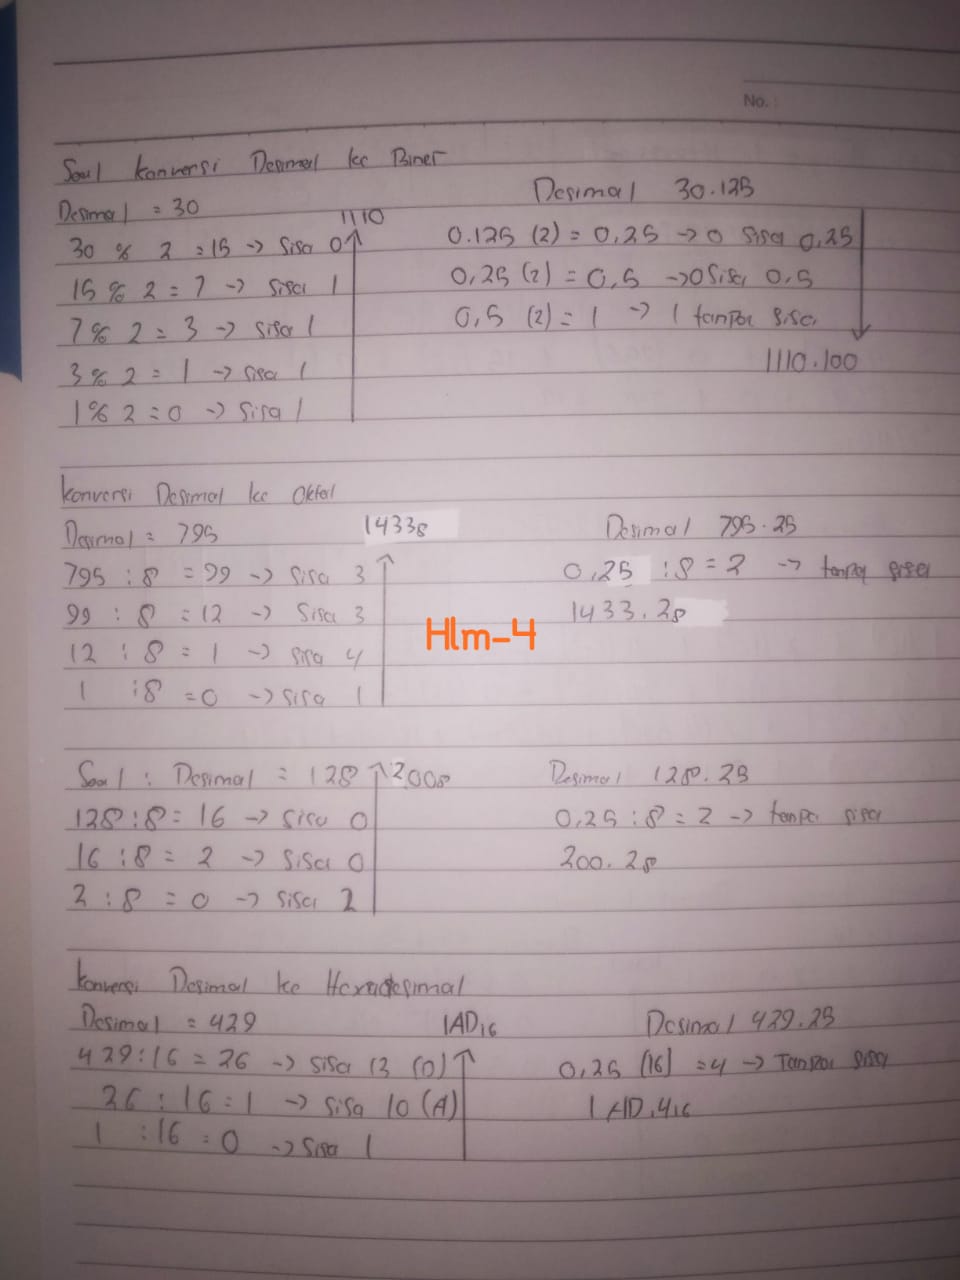 No. :
Soal konversi Desimal ke Biner
Desimal = 30
1110
30 % 2 = 15 -> Sisa 0
15 % 2 = 7 -> Sisa 1
7 % 2 = 3 -> Sisa 1
3 % 2 = 1 -> Sisa 1
1 % 2 = 0 -> Sisa 1
Desimal 30.125
0.125 (2) = 0,25 -> 0 Sisa 0,25
0,25 (2) = 0,5 -> 0 Sisa 0,5
0,5 (2) = 1 -> 1 tanpa Sisa
1110.100
konversi Desimal ke Oktal
Desimal = 795
1433₈
795 : 8 = 99 -> Sisa 3
99 : 8 = 12 -> Sisa 3
12 : 8 = 1 -> Sisa 4
1 : 8 = 0 -> Sisa 1
Desimal 795.25
0,25 : 8 = 2 -> tanpa sisa
1433.2₈
Hlm-4
Soal : Desimal = 128
200₈
128 : 8 = 16 -> Sisa 0
16 : 8 = 2 -> Sisa 0
2 : 8 = 0 -> Sisa 2
Desimal 128.25
0,25 : 8 = 2 -> tanpa sisa
200.2₈
konversi Desimal ke Hexadesimal
Desimal = 429
1AD₁₆
429 : 16 = 26 -> Sisa 13 (D)
26 : 16 = 1 -> Sisa 10 (A)
1 : 16 = 0 -> Sisa 1
Desimal 429.25
0,25 (16) = 4 -> Tanpa sisa
1AD.4₁₆